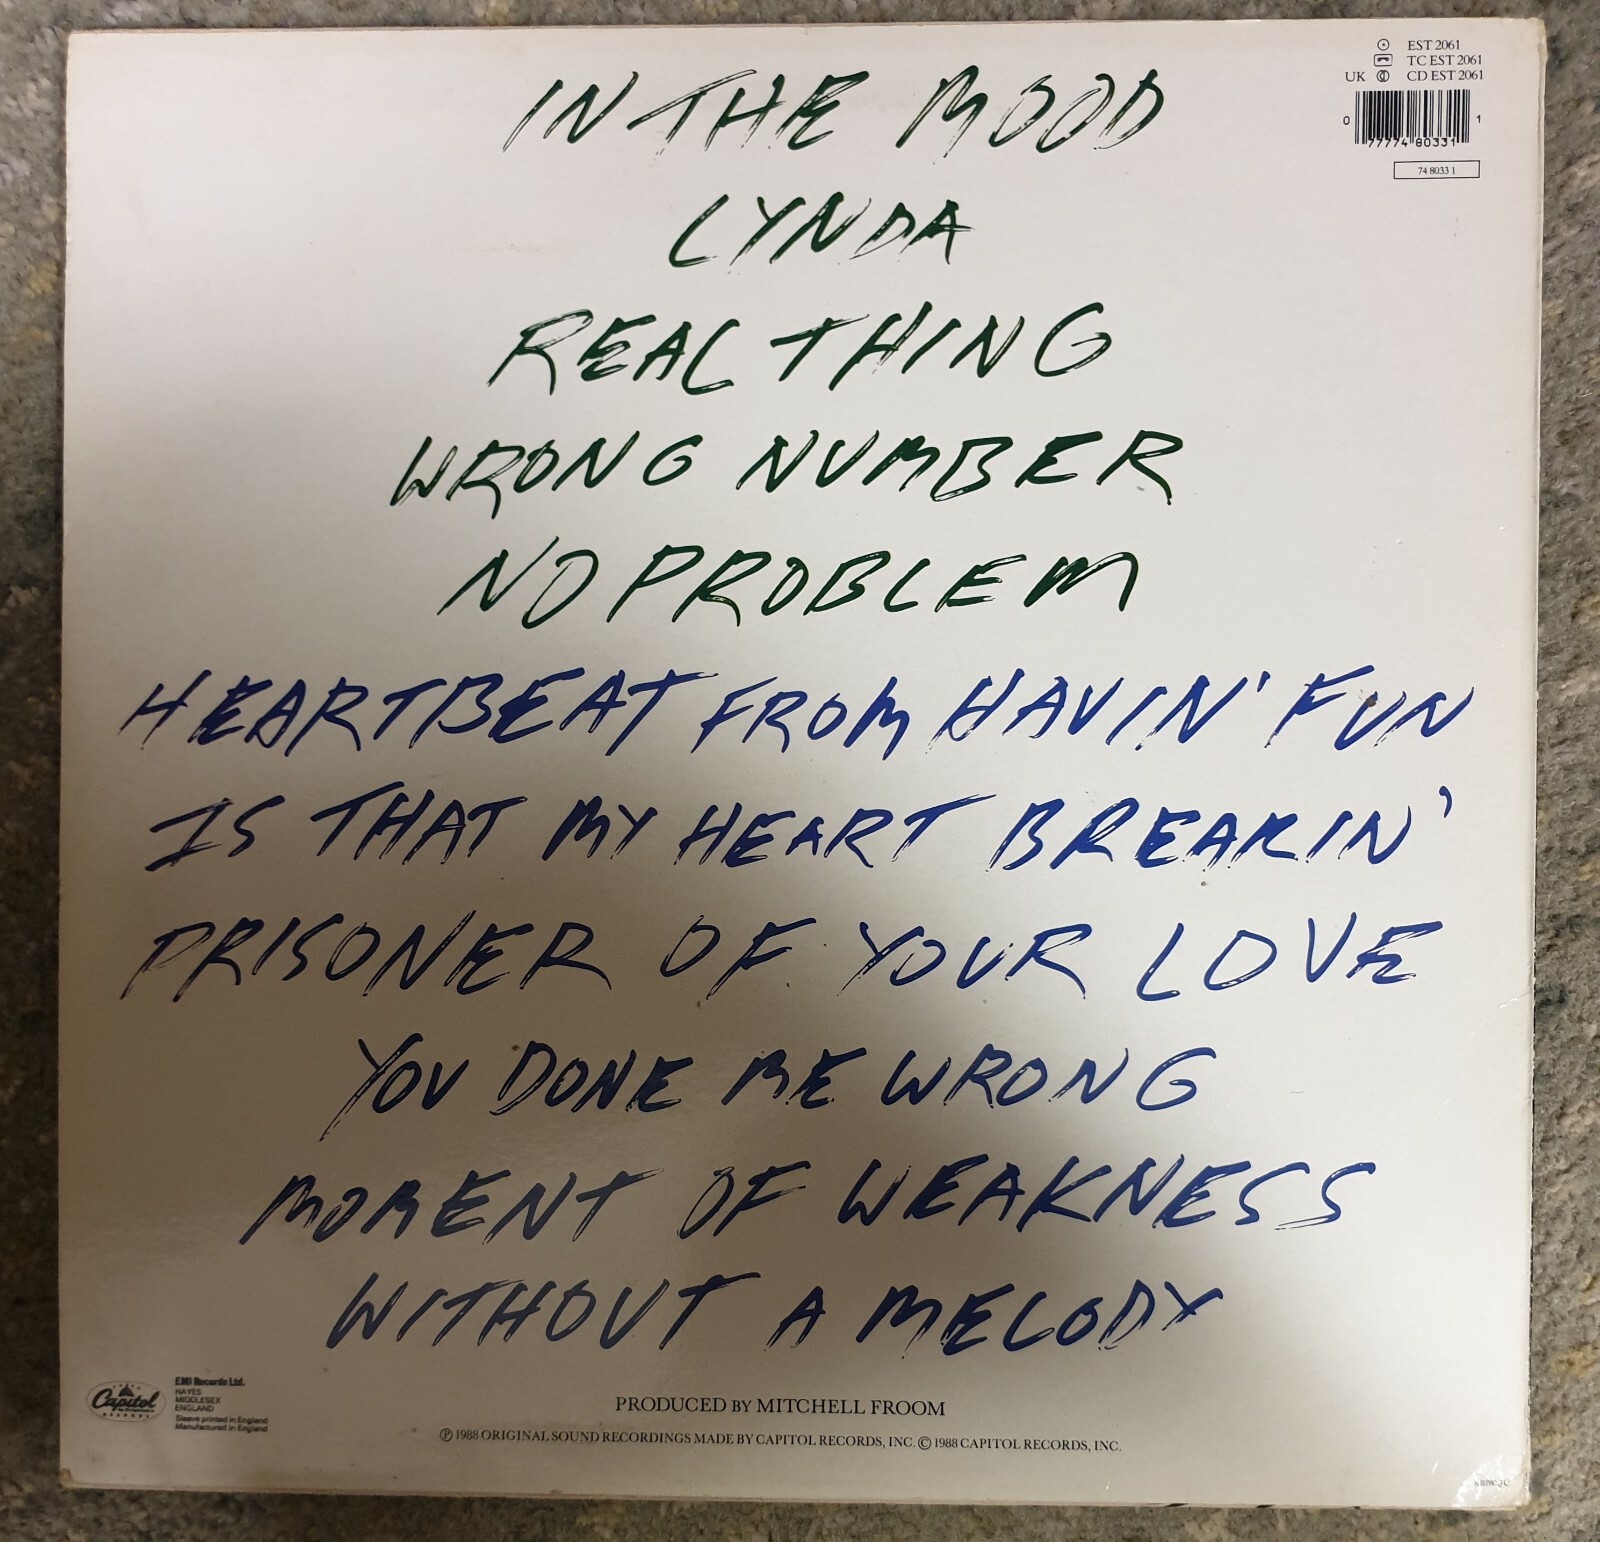 EST 2061
TC EST 2061
UK CD EST 2061
0 77774 80331 1
74 8033 1
IN THE MOOD
LYNDA
REAL THING
WRONG NUMBER
NO PROBLEM
HEARTBEAT FROM HAVIN' FUN
IS THAT MY HEART BREAKIN'
PRISONER OF YOUR LOVE
YOU DONE ME WRONG
MOMENT OF WEAKNESS
WITHOUT A MELODY
Capitol
RECORDS
EMI Records Ltd.
HAYES
MIDDLESEX
ENGLAND
Sleeve printed in England
Manufactured in England
PRODUCED BY MITCHELL FROOM
℗ 1988 ORIGINAL SOUND RECORDINGS MADE BY CAPITOL RECORDS, INC. © 1988 CAPITOL RECORDS, INC.